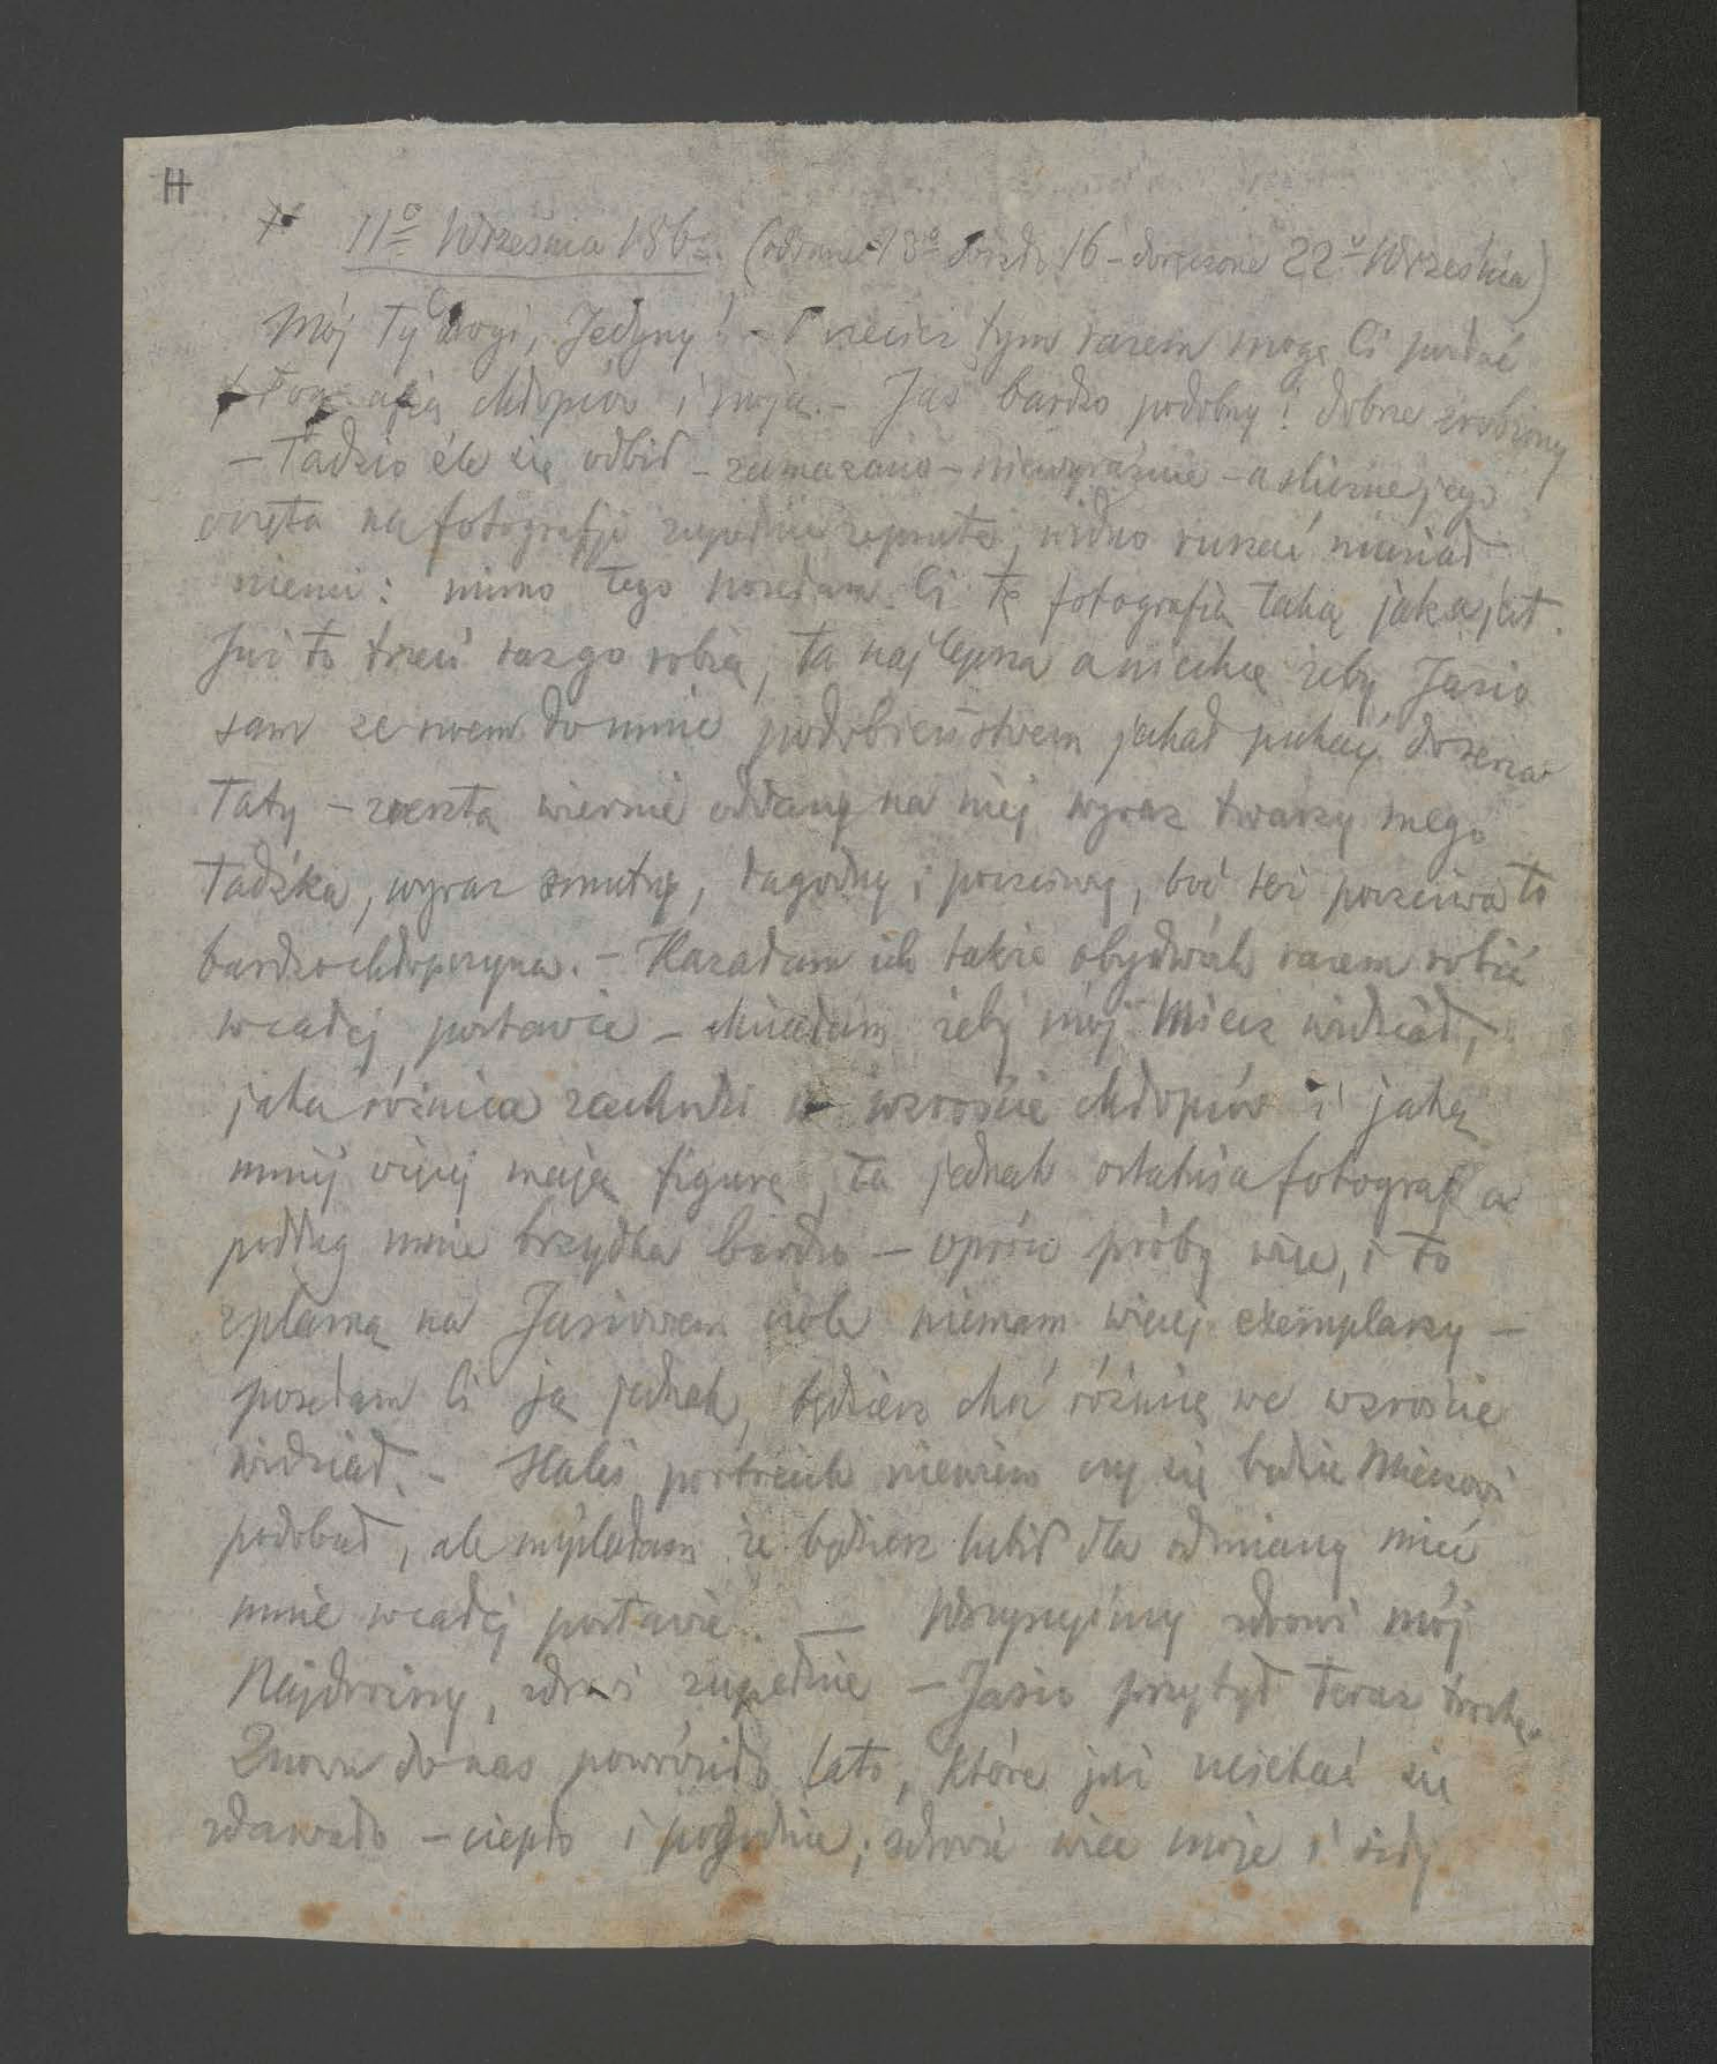 H
11º Września 186 (oddane 13º doszło 16 – doręczone 22º Września)
Mój Ty drogi, Jedyny! – Przecież tym razem mogę Ci posłać
chłopców i moją. – Jaś bardzo podobny i dobrze zrobiony
– Tadzio źle się odbił – zamazano – niewyraźnie – a śliczne jego
oczęta na fotografji zupełnie zepsute, widno ruszać musiał
niemi: mimo tego posełam Ci tę fotografią taką jaka jest.
Już to trzeci raz go robią, ta najlepsza a niechcę żeby Jasio
sam ze swem do mnie podobieństwem jechał do
Taty – zresztą wiernie oddany na niej wyraz twarzy mego
Tadźka, wyraz smutny, łagodny i poczciwy, boć też poczciwa to
bardzo chłopczyna. – Kazałam ich także obydwóch razem robić
w całej postawie – chciałam żeby mój Miecz widział,
jaka różnica zachodzi w wzroście chłopców i jaką
mniej więcej mają figurę, ta jednak ostatnia fotografia
podług mnie brzydka bardzo – oprócz próby więc, i to
z plamą na Jasiowem czole niemam więcej exemplarzy –
posełam Ci ją jednak, będziesz choć różnicę we wzroście
widział. – Hali portrecik niewiem czy się będzie Mieczowi
podobał, ale myślałam że będziesz lubił dla odmiany mieć
mnie w całej postawie. — Wszyscyśmy zdrowi mój
Najdroższy, zdrowi zupełnie – Jasio przytył teraz trochę.
Znowu do nas powróciło lato, które już uciekać się
zdawało – ciepło i pogodnie; zdrowie więc moje i siły